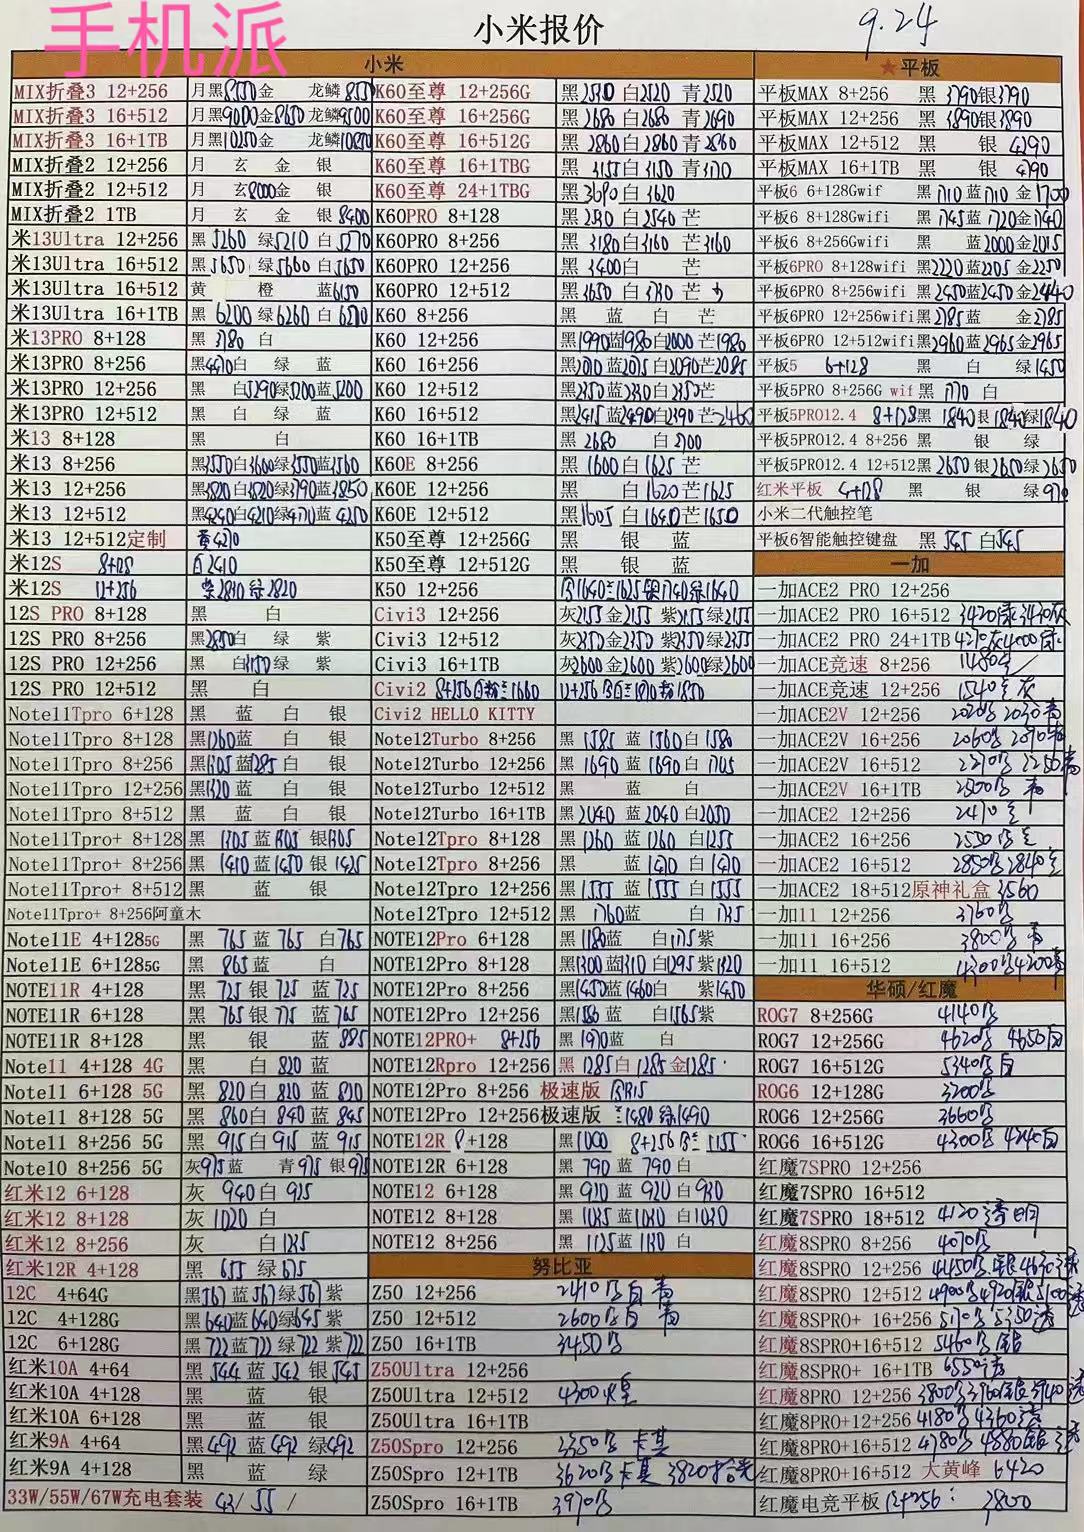 手机派
小米报价
9.24
小米
MIX折叠3 12+256 月黑8550金 龙鳞8550
MIX折叠3 16+512 月黑9000金8650 龙鳞9500
MIX折叠3 16+1TB 月黑10250金 龙鳞10870
MIX折叠2 12+256 月 玄 金 银
MIX折叠2 12+512 月 玄8000金 银
MIX折叠2 1TB 月 玄 金 银8400
米13Ultra 12+256 黑5260 绿5210 白5270
米13Ultra 16+512 黑5650 绿5660 白5650
米13Ultra 16+512 黄 橙 蓝6150
米13Ultra 16+1TB 黑6200 绿6260 白6270
米13PRO 8+128 黑3780 白
米13PRO 8+256 黑4470白 绿 蓝
米13PRO 12+256 黑 白5290绿5200蓝5200
米13PRO 12+512 黑 白 绿 蓝
米13 8+128 黑 白
米13 8+256 黑3550白3600绿3550蓝3560
米13 12+256 黑3820白3820绿3790蓝3850
米13 12+512 黑4240白4210绿4170蓝4250
米13 12+512定制 黄4270
米12S 8+128 白2410
米12S 12+256 紫2830绿2820
12S PRO 8+128 黑 白
12S PRO 8+256 黑2850白 绿 紫
12S PRO 12+256 黑 白3150绿 紫
12S PRO 12+512 黑 白
Note11Tpro 6+128 黑 蓝 白 银
Note11Tpro 8+128 黑1260蓝 白 银
Note11Tpro 8+256 黑1305蓝1285白 银
Note11Tpro 12+256 黑1320蓝 白 银
Note11Tpro 8+512 黑 蓝 白 银
Note11Tpro+ 8+128 黑 1305 蓝1305 银1305
Note11Tpro+ 8+256 黑 1410 蓝1430 银1425
Note11Tpro+ 8+512 黑 蓝 银
Note11Tpro+ 8+256阿童木
Note11E 4+1285G 黑 765 蓝 765 白765
Note11E 6+1285G 黑 865蓝 白
NOTE11R 4+128 黑 725 银 725 蓝725
NOTE11R 6+128 黑 765 银 775 蓝765
NOTE11R 8+128 黑 银 蓝885
Note11 4+128 4G 黑 白 820 蓝
Note11 6+128 5G 黑 820白 820 蓝 820
Note11 8+128 5G 黑 860白 840 蓝 845
Note11 8+256 5G 黑 915白 915 蓝 915
Note10 8+256 5G 灰975蓝 青975 银975
红米12 6+128 灰 940白 925
红米12 8+128 灰 1020 白
红米12 8+256 灰 白1235
红米12R 4+128 黑 655 绿675
12C 4+64G 黑567蓝567绿567紫
12C 4+128G 黑640蓝640绿645紫
12C 6+128G 黑722蓝722绿722紫722
红米10A 4+64 黑 544 蓝 542 银545
红米10A 4+128 黑 蓝 银
红米10A 6+128 黑 蓝 银
红米9A 4+64 黑492 蓝492 绿492
红米9A 4+128 黑 蓝 绿
33W/55W/67W充电套装 43/ 55 /
K60至尊 12+256G 黑2510 白2520 青2520
K60至尊 16+256G 黑2680 白2680 青2690
K60至尊 16+512G 黑2860白2860青2860
K60至尊 16+1TBG 黑 3155白3150 青3170
K60至尊 24+1TBG 黑3690白3620
K60PRO 8+128 黑2530 白2540 芒
K60PRO 8+256 黑3180白3160 芒3160
K60PRO 12+256 黑3400白 芒
K60PRO 12+512 黑3650 白3730 芒
K60 8+256 黑 蓝 白 芒
K60 12+256 黑1990蓝1980白2000芒1980
K60 16+256 黑2070蓝2075白2090芒2085
K60 12+512 黑2350蓝2330白2350芒
K60 16+512 黑2415蓝2490白2390芒2460
K60 16+1TB 黑2680 白2700
K60E 8+256 黑 1600 白 1625 芒
K60E 12+256 黑 白1620芒1625
K60E 12+512 黑1605 白1640芒1650
K50至尊 12+256G 黑 银 蓝
K50至尊 12+512G 黑 银 蓝
K50 12+256 1640 1625 1740绿1640
Civi3 12+256 灰2155金2155 紫2155绿2155
Civi3 12+512 灰2350金2350 紫2350绿2355
Civi3 16+1TB 灰2600金2600 紫2600绿2600
Civi2 8+256 1660 12+256
Civi2 HELLO KITTY
Note12Turbo 8+256 黑 1585 蓝 1560白 1580
Note12Turbo 12+256 黑 1690 蓝 1690白 1705
Note12Turbo 12+512 黑 蓝 白
Note12Turbo 16+1TB 黑2040 蓝2040 白2050
Note12Tpro 8+128 黑 1260 蓝 1260 白1255
Note12Tpro 8+256 黑 蓝1470 白1470
Note12Tpro 12+256 黑1555 蓝1555 白1555
Note12Tpro 12+512 黑 1760蓝 白 1735
NOTE12Pro 6+128 黑1180蓝 白1175紫
NOTE12Pro 8+128 黑1300蓝1310白1295紫1320
NOTE12Pro 8+256 黑1450蓝1460白 紫1450
NOTE12Pro 12+256 黑 蓝 白1565紫
NOTE12PRO+ 8+256 黑1970蓝 白
NOTE12Rpro 12+256 黑1285白1285金1285
NOTE12Pro 8+256 极速版
NOTE12Pro 12+256极速版 1480绿1490
NOTE12R 8+128 黑1000 8+256 1155
NOTE12R 6+128 黑 790 蓝 790白
NOTE12 6+128 黑 910 蓝 920白930
NOTE12 8+128 黑 1035 蓝1030 白1030
NOTE12 8+256 黑 1125蓝1130 白
努比亚
Z50 12+256 2410 白 青
Z50 12+512 2600 白 青
Z50 16+1TB 3450
Z50Ultra 12+256
Z50Ultra 12+512 4300
Z50Ultra 16+1TB
Z50Spro 12+256 3350 卡其
Z50Spro 12+1TB 3620 卡其 3820
Z50Spro 16+1TB 3970
★平板
平板MAX 8+256 黑 3790银3790
平板MAX 12+256 黑 3890银3890
平板MAX 12+512 黑 银 4290
平板MAX 16+1TB 黑 银 4790
平板6 6+128Gwif 黑 1710蓝1710 金1700
平板6 8+128Gwifi 黑 1745蓝1720金1740
平板6 8+256Gwifi 黑 蓝2000金2015
平板6PRO 8+128wifi 黑2220蓝2205 金2250
平板6PRO 8+256wifi 黑2450蓝2450 金2440
平板6PRO 12+256wifi黑2785蓝 金2785
平板6PRO 12+512wifi黑2960蓝2965金2965
平板5 6+128 黑 白 绿1450
平板5PRO 8+256G wif 黑 1770 白
平板5PRO12.4 8+128黑 1840银1840绿1840
平板5PRO12.4 8+256 黑 银 绿
平板5PRO12.4 12+512黑 2650 银2650绿2650
红米平板 4+128 黑 银 绿970
小米二代触控笔
平板6智能触控键盘 黑 545 白545
一加
一加ACE2 PRO 12+256
一加ACE2 PRO 16+512 3420绿3430灰
一加ACE2 PRO 24+1TB 4270灰4000
一加ACE竞速 8+256 1480
一加ACE竞速 12+256 1540 灰
一加ACE2V 12+256 2020 2030青
一加ACE2V 16+256 2060 2090
一加ACE2V 16+512 2270 2250青
一加ACE2V 16+1TB 2500 青
一加ACE2 12+256 2470
一加ACE2 16+256 2550
一加ACE2 16+512 2850 2840
一加ACE2 18+512原神礼盒 3560
一加11 12+256 3760
一加11 16+256 3800 青
一加11 16+512 4300 4200青
华硕/红魔
ROG7 8+256G 4140
ROG7 12+256G 4620 4650白
ROG7 16+512G 5340 白
ROG6 12+128G 3200
ROG6 12+256G 3660
ROG6 16+512G 4300 4240白
红魔7SPRO 12+256
红魔7SPRO 16+512
红魔7SPRO 18+512 4120透明
红魔8SPRO 8+256 4070
红魔8SPRO 12+256 4450 银4630透
红魔8SPRO 12+512 4900 4920银5100透
红魔8SPRO+ 16+256 5170 5350透
红魔8SPRO+16+512 5460 银
红魔8SPRO+ 16+1TB 6550透
红魔8PRO 12+256 3800 3960银3940透
红魔8PRO+12+256 4180 4360透
红魔8PRO+16+512 4780 4880银 透
红魔8PRO+16+512 大黄蜂 6420
红魔电竞平板 12+256: 2800